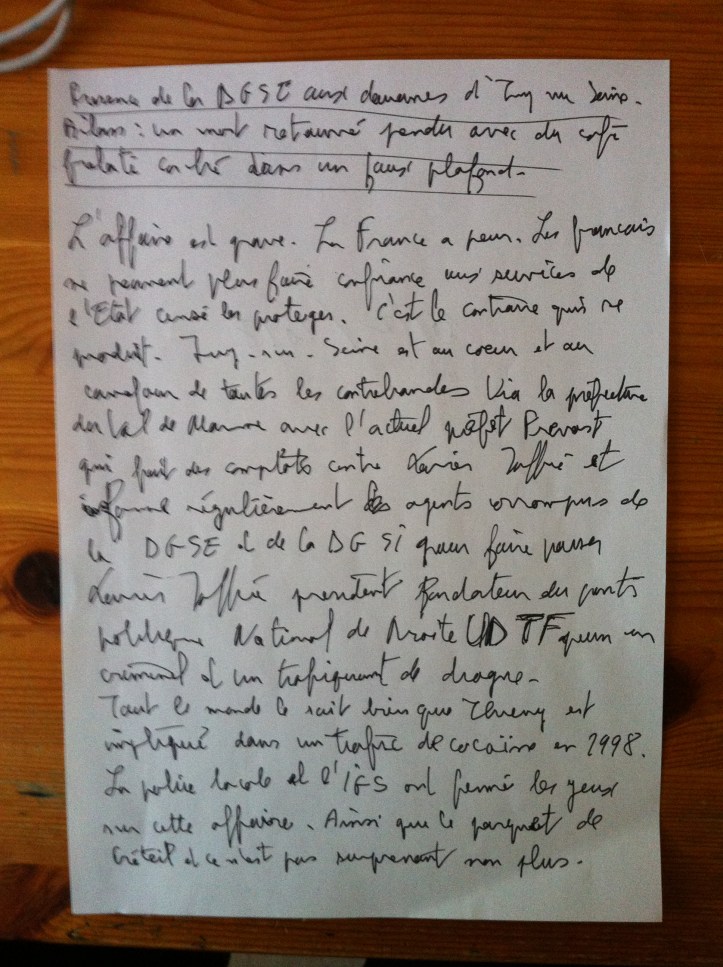 de la DGSE aux douanes d'Ivry sur Seine.
Bilan : un mort retourné pendu avec du café
frelaté caché dans un faux plafond.
L'affaire est grave. La France a peur. Les francais
ne peuvent plus faire confiance aux services de
l'Etat censé les proteger. C'est le contraire qui se
produit. Ivry-sur-Seine est au coeur et au
carrefour de toutes les contrebandes via la préfecture
du Val de Marne avec l'actuel préfet Prevost
qui fait des complots contre Xavier et
informe régulièrement les agents corrompus de
la DGSE et de la DGSi pour faire passer
Xavier president fondateur du parti
politique National de Droite UDTF pour un
criminel et un trafiquant de drogue.
Tout le monde le sait bien que Thierry est
impliqué dans un trafic de cocaïne en 1998.
La police locale et l'IGS ont fermé les yeux
sur cette affaire. Ainsi que le parquet de
Créteil et ce n'est pas surprenant non plus.